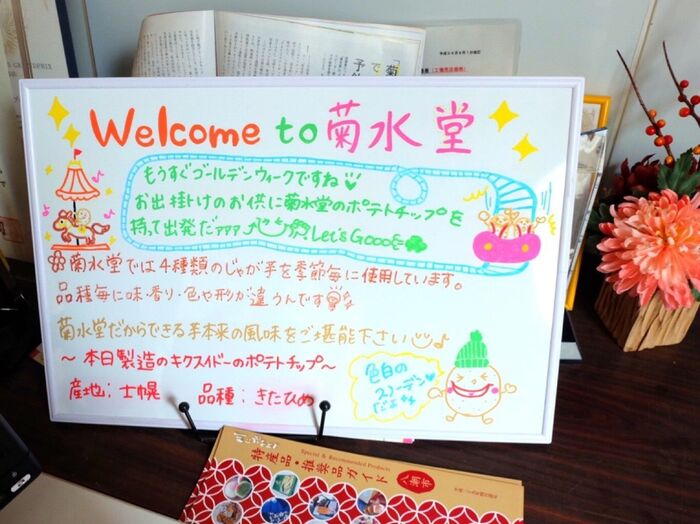 Welcome to 菊水堂
もうすぐゴールデンウィークですね♡
お出掛けのお供に菊水堂のポテトチップを
持って出発だァァァ Let's Gooo
菊水堂では4種類のじゃが芋を季節毎に使用しています。
品種毎に味・香り・色や形が違うんです
菊水堂だからできる芋本来の風味をご堪能下さい
～本日製造のキクスイドーのポテトチップ～
産地；士幌 品種；きたひめ
色白の
スノーデン
だよ
Special & Recommended Products
特産品・推奨品ガイド
八潮市